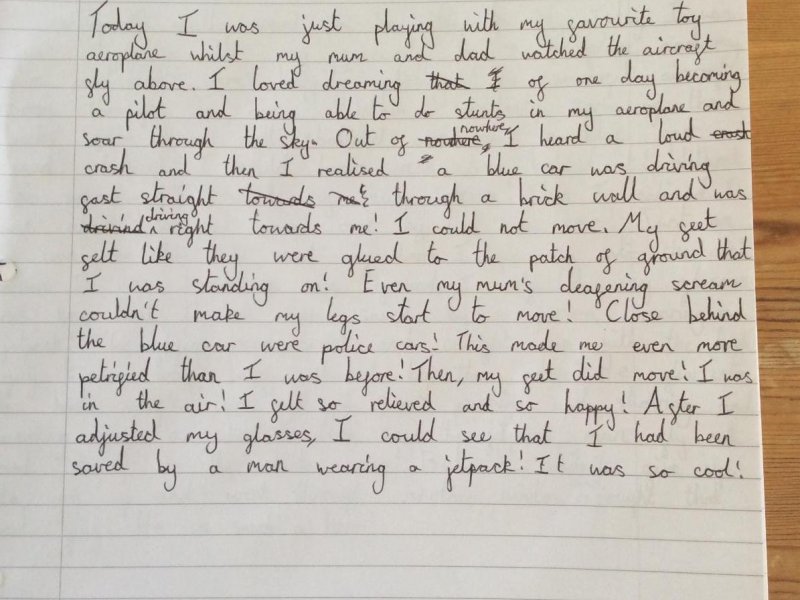 Today I was just playing with my favourite toy
aeroplane whilst my mum and dad watched the aircraft
fly above. I loved dreaming that I of one day becoming
a pilot and being able to do stunts in my aeroplane and
soar through the sky. Out of nowhere nowhere, I heard a loud crash
crash and then I realised a blue car was driving
fast straight towards me through a brick wall and was
drivind driving right towards me! I could not move. My feet
felt like they were glued to the patch of ground that
I was standing on! Even my mum's deafening scream
couldn't make my legs start to move! Close behind
the blue car were police cars! This made me even more
petrified than I was before! Then, my feet did move! I was
in the air! I felt so relieved and so happy! After I
adjusted my glasses, I could see that I had been
saved by a man wearing a jetpack! It was so cool!